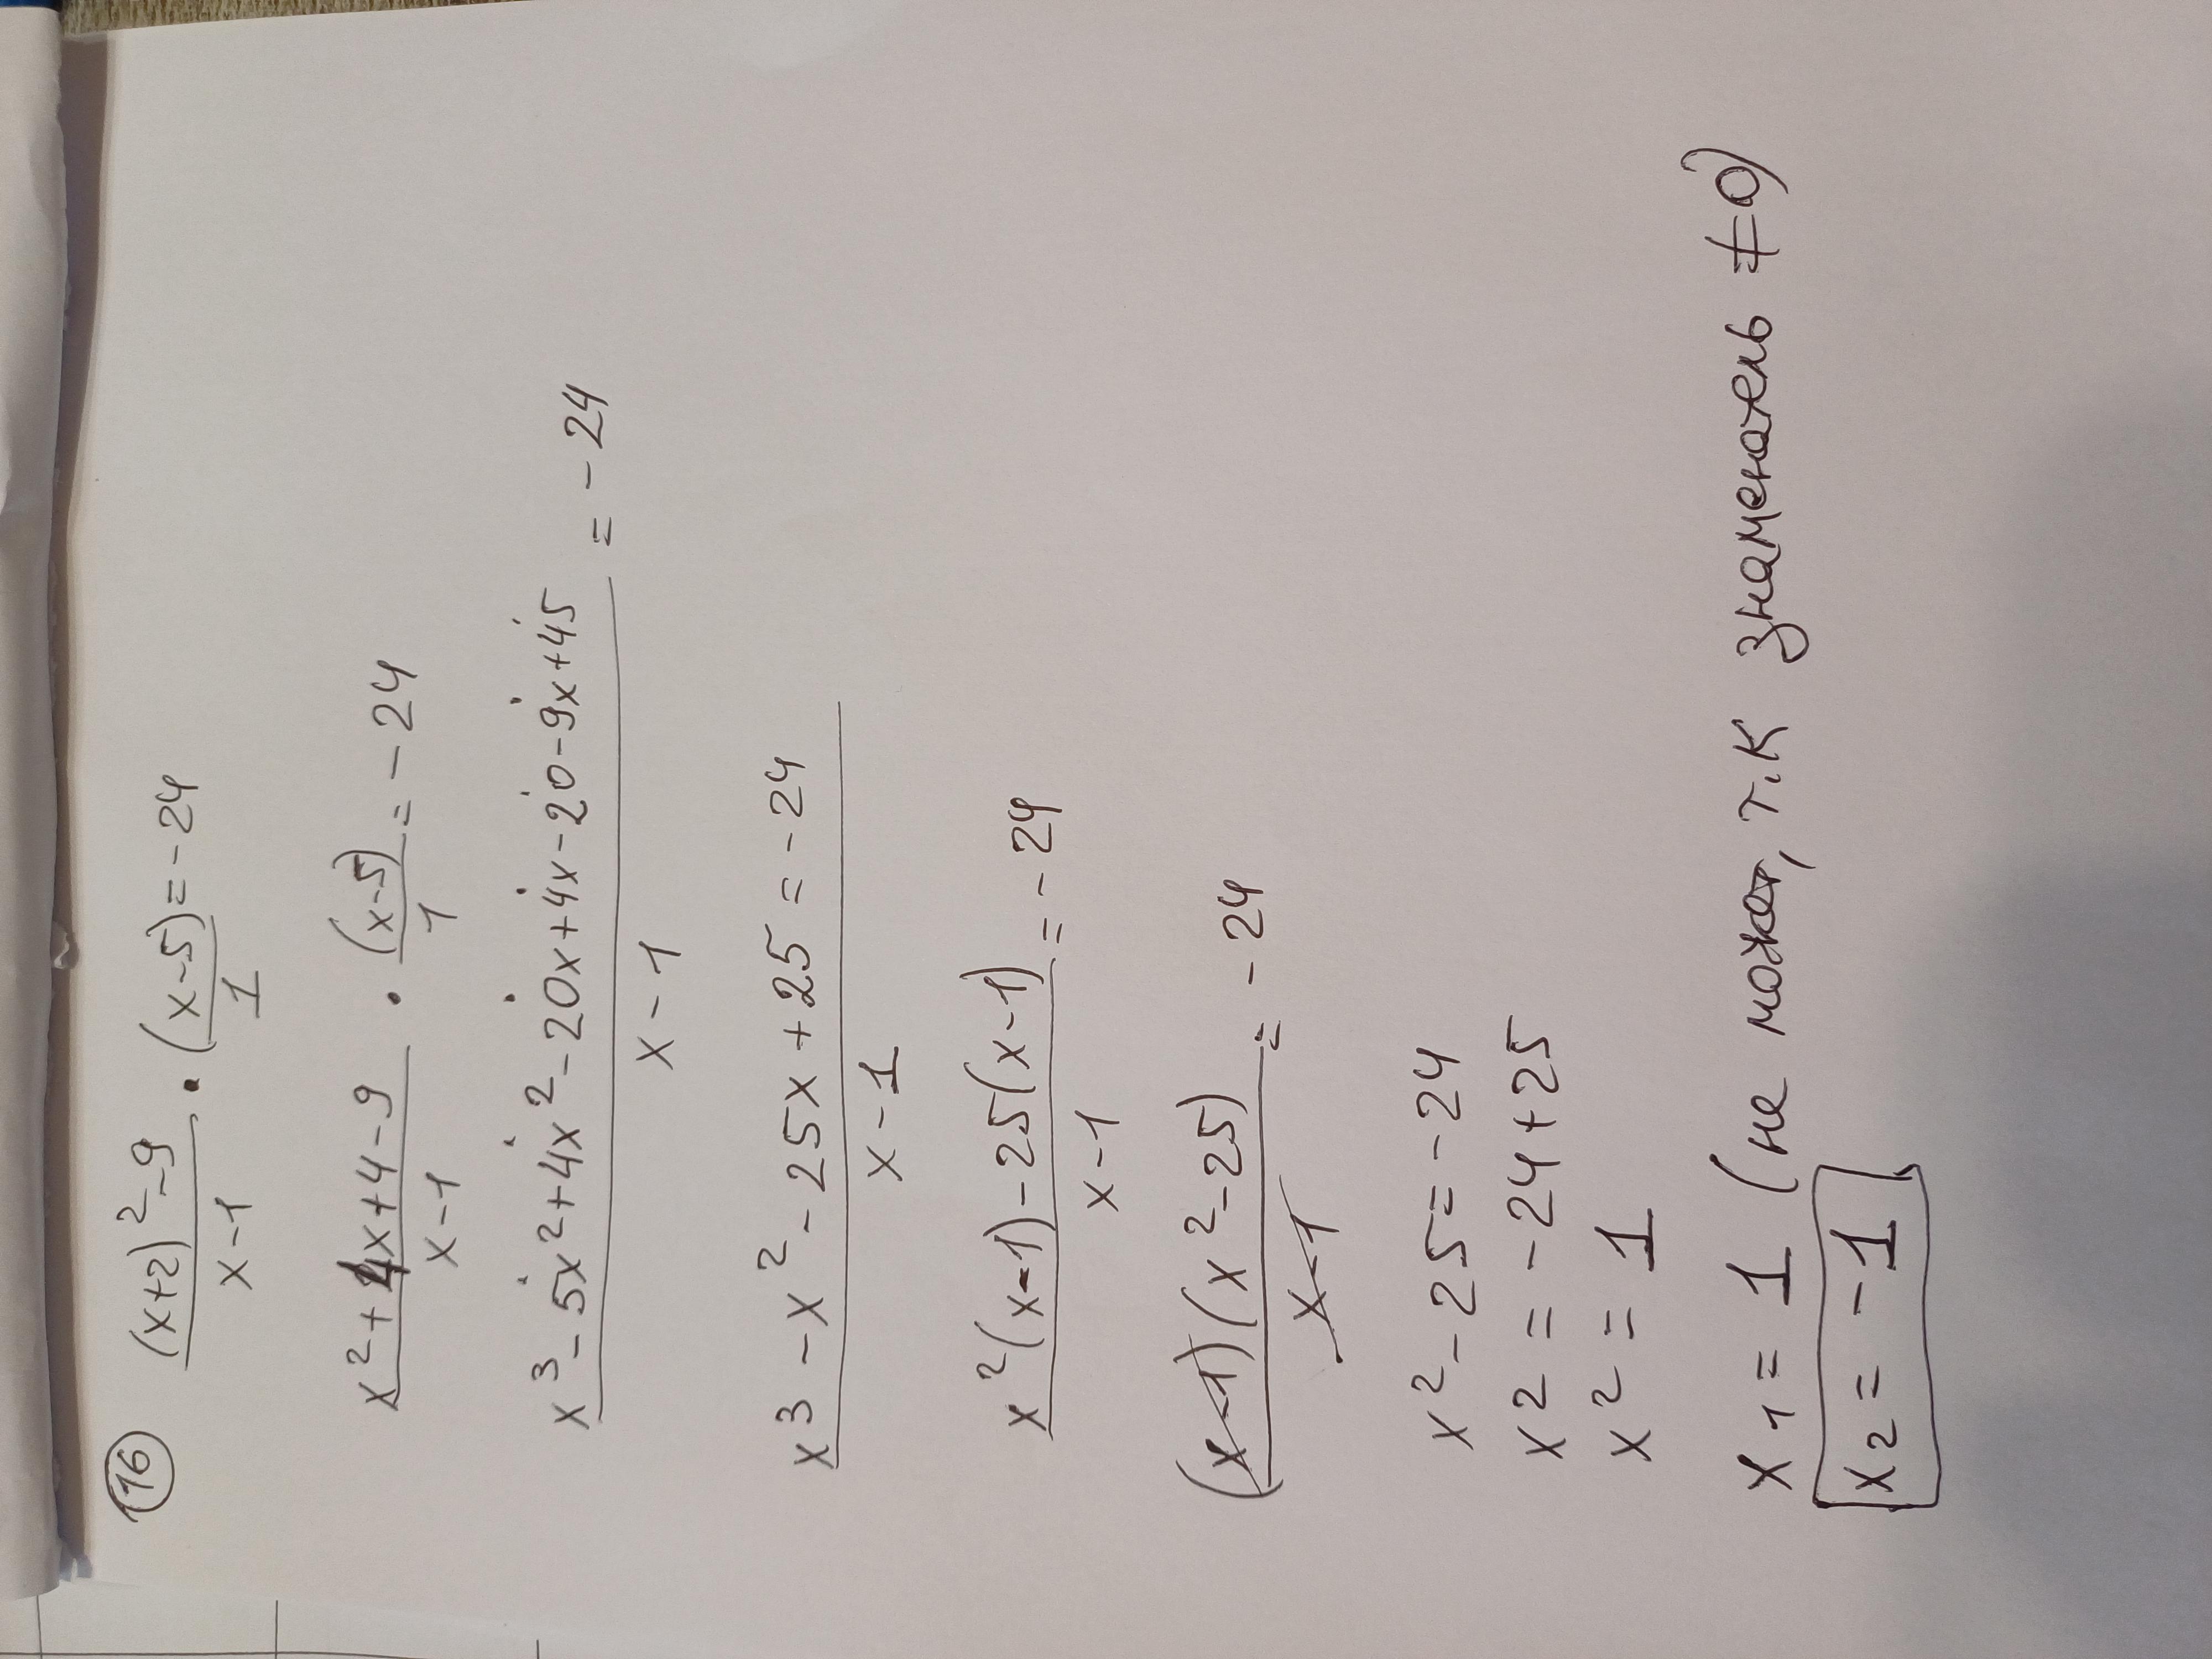 16 (x+2)²-9/x-1 · (x-5)/1 = -24
x²+4x+4-9/x-1 · (x-5)/1 = -24
x³-5x²+4x²-20x+4x-20-9x+45/x-1 = -24
x³-x²-25x+25 = -24/x-1
x²(x-1)-25(x-1)/x-1 = -24
(x-1)(x²-25)/x-1 = -24
x²-25=-24
x2 = -24+25
x² = 1
x1 = 1 (не может, т.к знаменатель ≠0)
x2 = -1